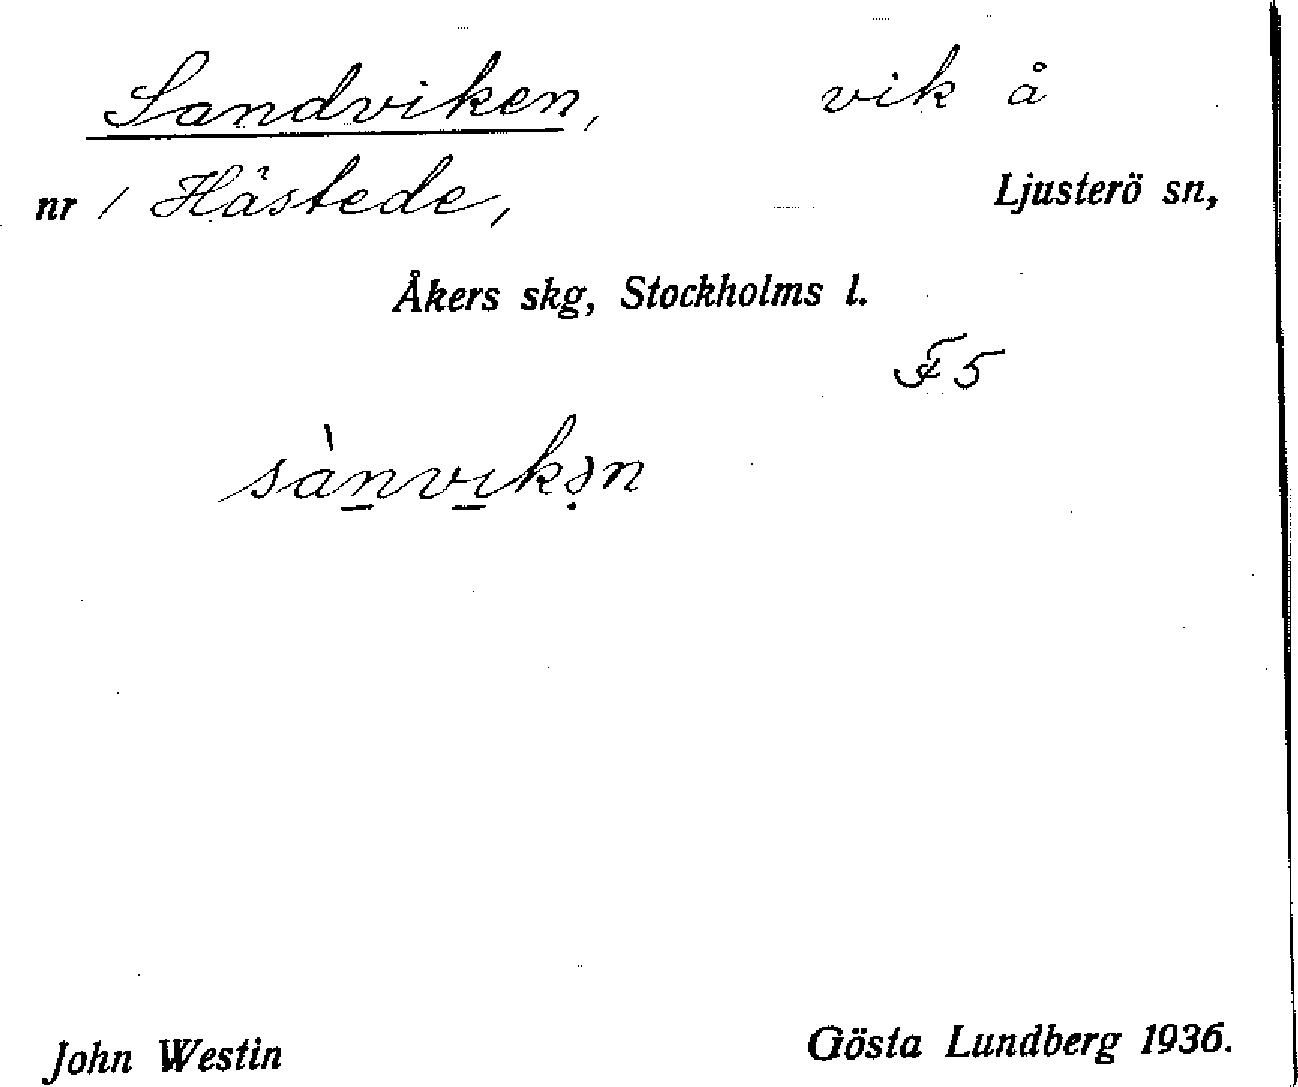 Sandviken, vik å
nr 1 Hästede, Ljusterö sn,
Åkers skg, Stockholms l.
F5
sànvikən
John Westin Gösta Lundberg 1936.